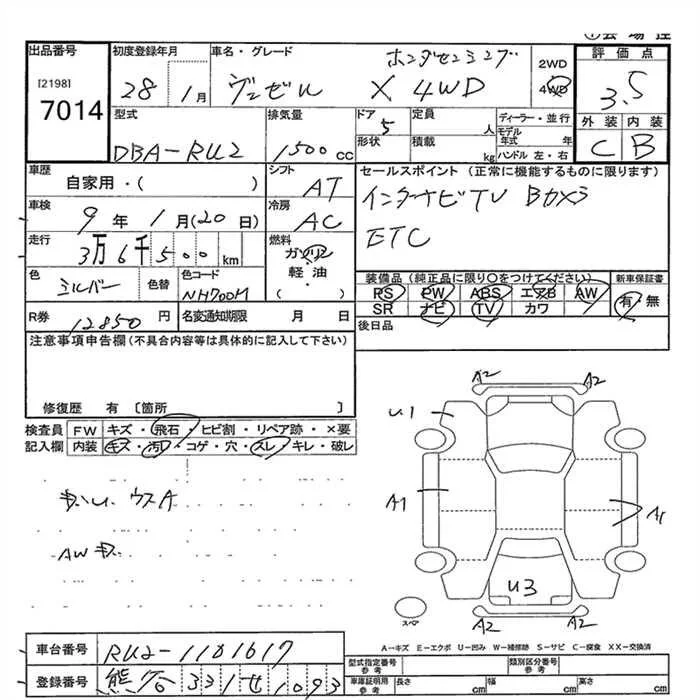 ①会場控
出品番号 初度登録年月 車名・グレード 評価点
[2198] 7014
28 1月 ヴェゼル ホンダセンシング X 4WD 2WD 4WD 3.5
型式 排気量 ドア 定員 ディーラー・並行 外装 内装
DBA-RU2 1500cc 5 人 モデル年式 年 C B
形状 積載 kg ハンドル 左・右
車歴 シフト セールスポイント (正常に機能するものに限ります)
自家用・( ) AT インターナビTV Bカメラ
車検 冷房
9年1月(20日) AC ETC
走行 燃料
3万6千500km ガソリン
軽・油
( )
色 色替 色コード 装備品(純正品に限り○をつけてください) 新車保証書
シルバー NH700M PS PW ABS エアB AW 有・無
SR ナビ TV カワ
R券 12850円 名変通知期限 月 日 後日品
注意事項申告欄(不具合内容等は具体的に記入して下さい)
修復歴 有 〔箇所 〕
検査員記入欄 FW キズ・飛石・ヒビ割・リペア跡・×要
内装 キズ・汚れ・コゲ・穴・スレ・キレ・破レ
A2 A2
U1
ウスA
A1 A1
AW
U3
スペア
A2 A2
A-キズ E-エクボ U-凹み W-補修跡 S-サビ C-腐食 XX-交換済
車台番号 RU2-1101617
登録番号 熊谷331せ1093
型式指定番号 参考 類別区分番号 参考
車庫証明用 参考 長さ cm 幅 cm 高さ cm